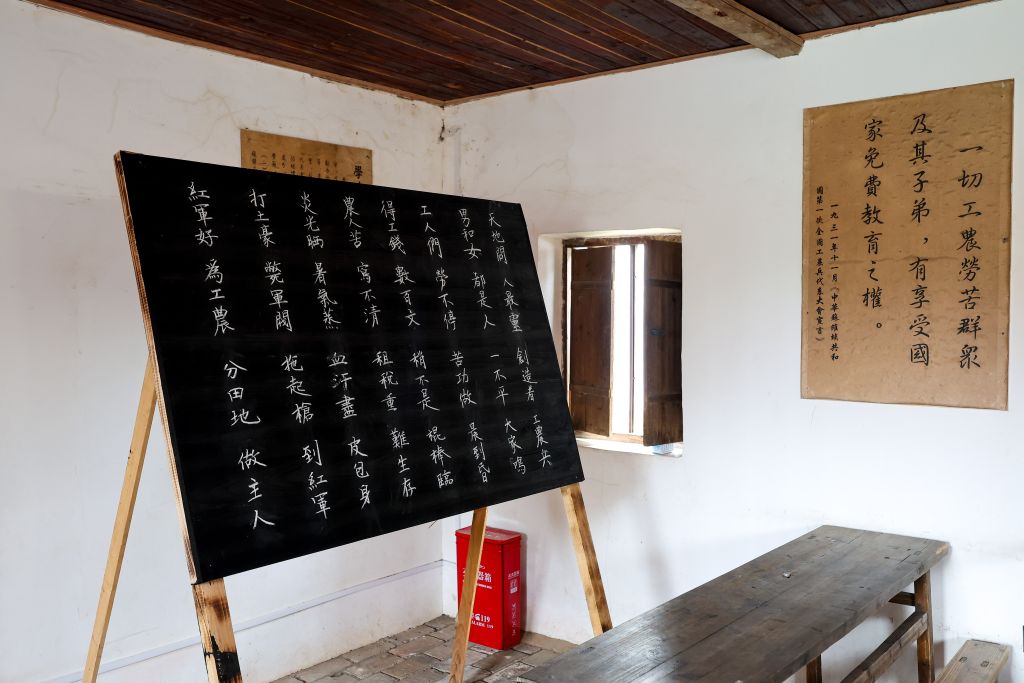 天地間 人最靈 創造者 工農兵
男和女 都是人 一不平 大家鳴
工人們 勞不停 苦功做 晨到昏
得工錢 數百文 稍不是 棍棒臨
農人苦 寫不清 租稅重 難生存
炎光晒 暑氣蒸 血汗盡 皮包身
打土豪 斃軍閥 拖起槍 到紅軍
紅軍好 為工農 分田地 做主人
一切工農勞苦群眾
及其子弟，有享受國
家免費教育之權。
一九三一年十一月《中華蘇維埃共和
國第一次全國工農兵代表大會宣言》
學
器箱
119
ALARM 119